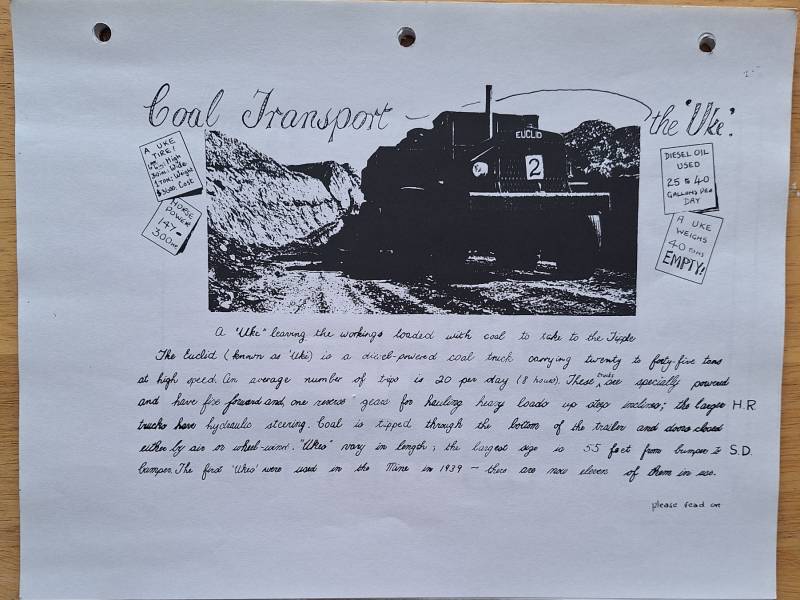 Coal Transport — the 'Uke'.
A UKE
TIRE!
High
Wide
1 Ton: Weight
Cost
HORSE
POWER
147 -
300HP
EUCLID
2
DIESEL OIL
USED
25 to 40
GALLONS PER
DAY
A UKE
WEIGHS
40 TONS
EMPTY!
A "Uke" leaving the workings loaded with coal to take to the Tipple
The Euclid (known as 'Uke) is a diesel-powered coal truck carrying twenty to forty-five tons
at high speed. An average number of trips is 20 per day (8 hours). These trucks are specially powered
and have five forward and one reverse gears for hauling heavy loads up steep inclines; the larger H.R.
trucks have hydraulic steering. Coal is tipped through the bottom of the trailer and doors closed
either by air or wheel-wind. "Ukes" vary in length; the largest size is 55 feet from bumper to S.D.
bumper. The first 'Ukes' were used in the Mine in 1939 - there are now eleven of them in use.
please read on